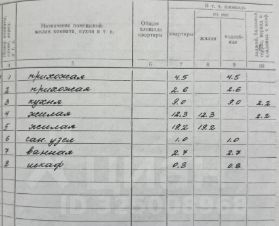 Назначение помещений: жилая комната, кухня и т. п.
Общая площадь квартиры
в т. ч. площадь
из нее
квартиры
жилая
4 5 6 7 8 9 10
1 прихожая 4.5 4.5
2 прихожая 2.6 2.6
3 кухня 9.0 9.0 2.2
4 жилая 12.3 12.3 2.2
5 жилая 19.2 19.2
6 сан. узел 1.0 1.0
7 ванная 2.7 2.7
8 шкаф 0.3 0.3